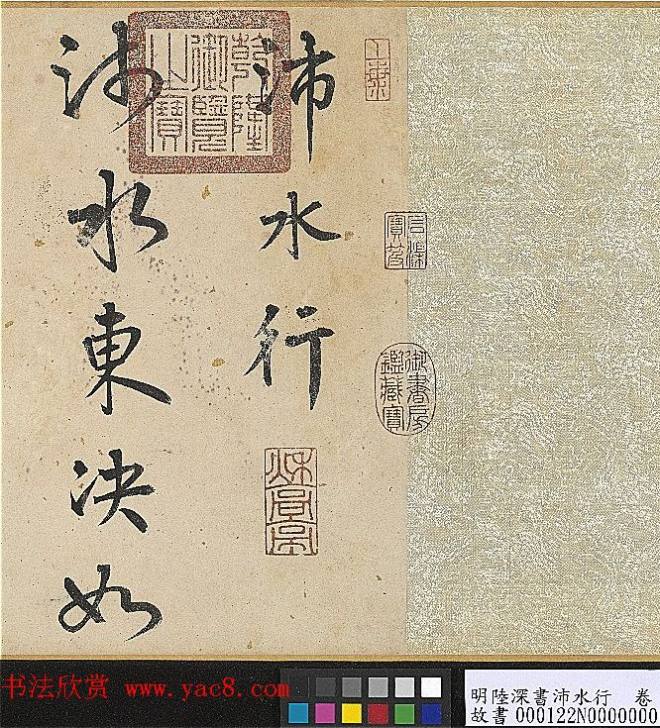 石渠寶笈
御書房鑑藏寶
乾隆御覽之寶
沛水行
沛水東決如
书法欣赏 www.yac8.com
明陸深書沛水行 卷
故書 000122N0000000